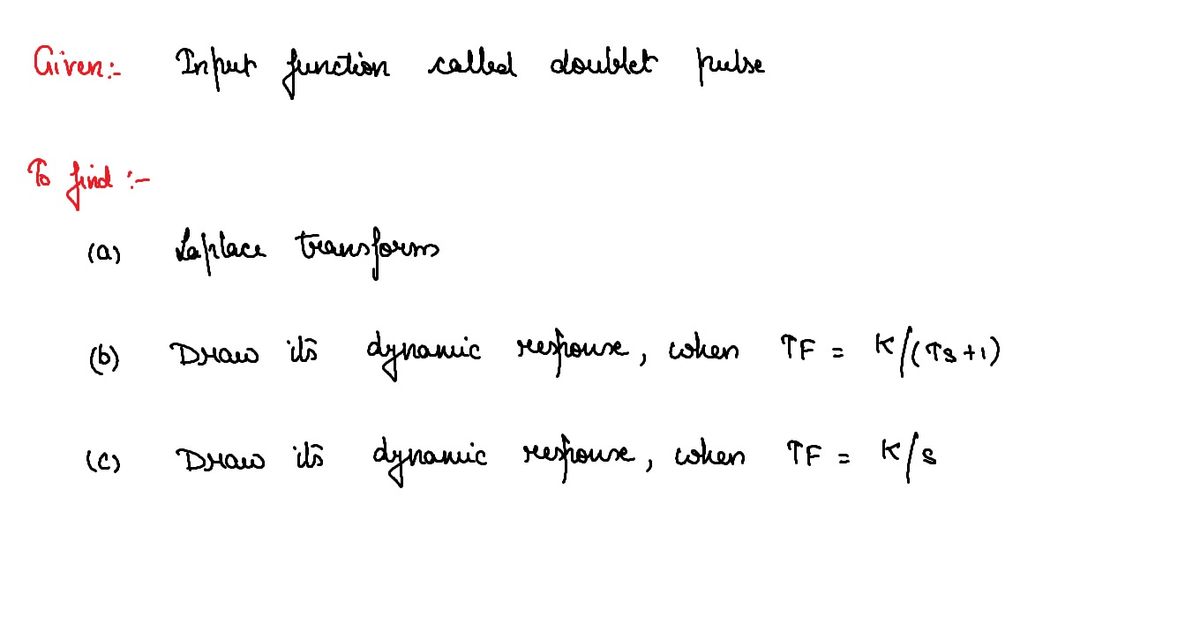 Given:- Input function called doublet pulse
To find :-
(a) Laplace transforms
(b) Draw its dynamic response, when TF = K/(τs+1)
(c) Draw its dynamic response, when TF = K/s